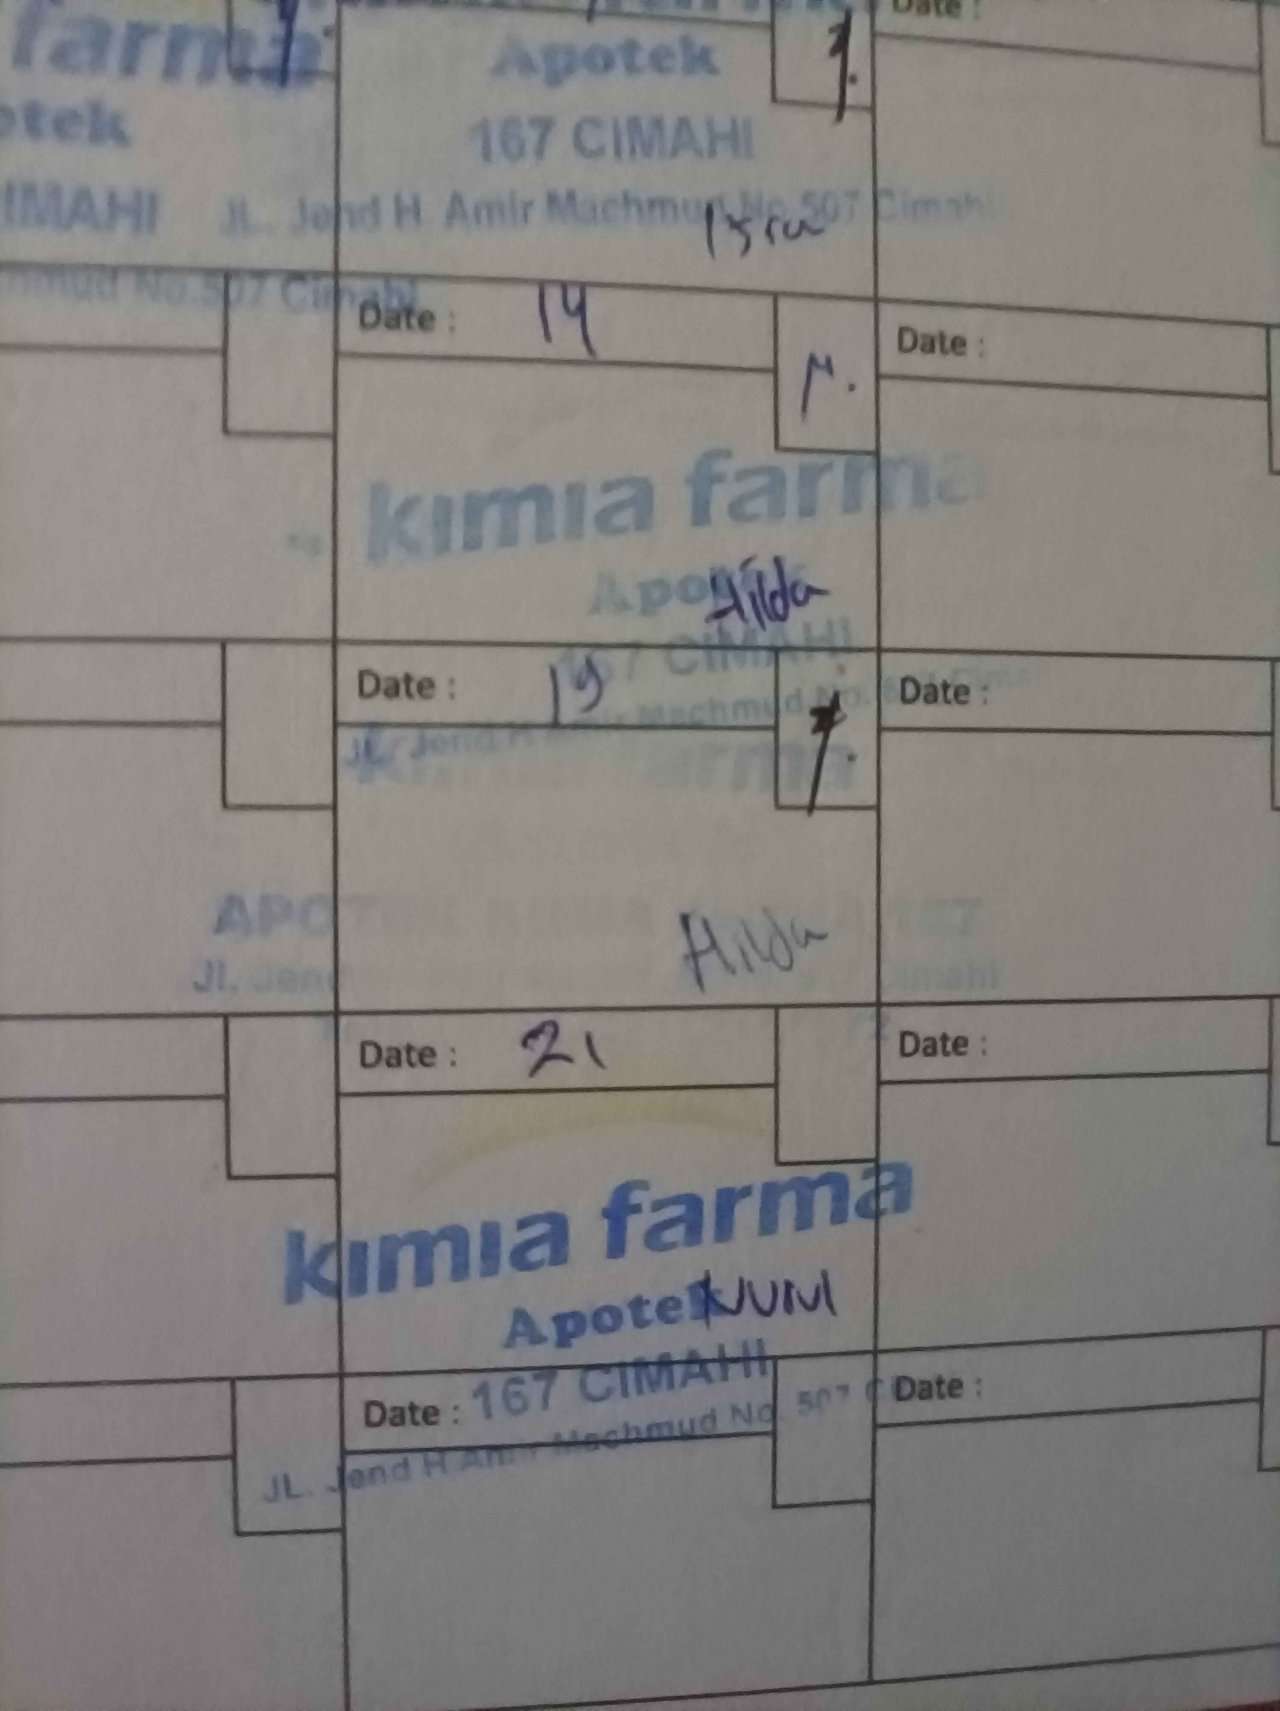 farma
Date :
Apotek
otek
167 CIMAHI
IMAHI
JL. Jend H Amir Machmud No.507 Cimahi
Isra
hmud No.507 Cimahi
Date : 14
Date :
kimia farma
Apotek
Hilda
167 CIMAHI
Date : 19
Date :
JL. Jend H Amir Machmud No.
farma
Hilda
Jl. Jend
Cimahi
Date : 21
Date :
kimia farma
Apotek
Nurul
167 CIMAHI
Date :
Date :
JL. Jend H Amir Machmud No. 507